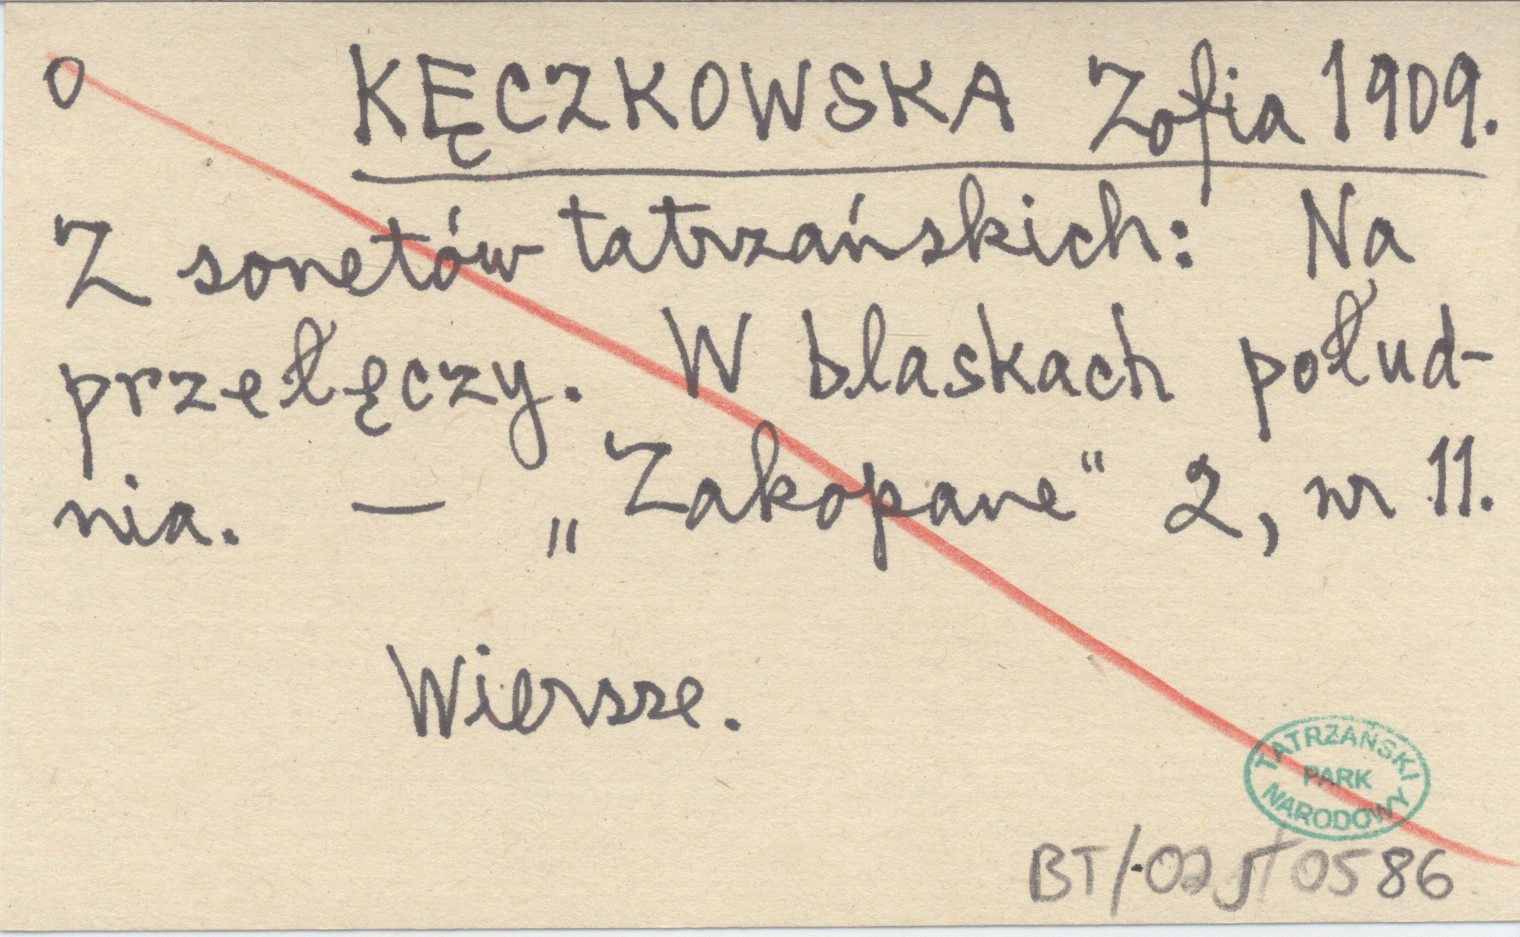 o KĘCZKOWSKA Zofia 1909.
Z sonetów tatrzańskich: Na
przełęczy. W blaskach połud-
nia. — „Zakopane" 2, nr 11.
Wiersze.
TATRZAŃSKI
PARK
NARODOWY
BT/